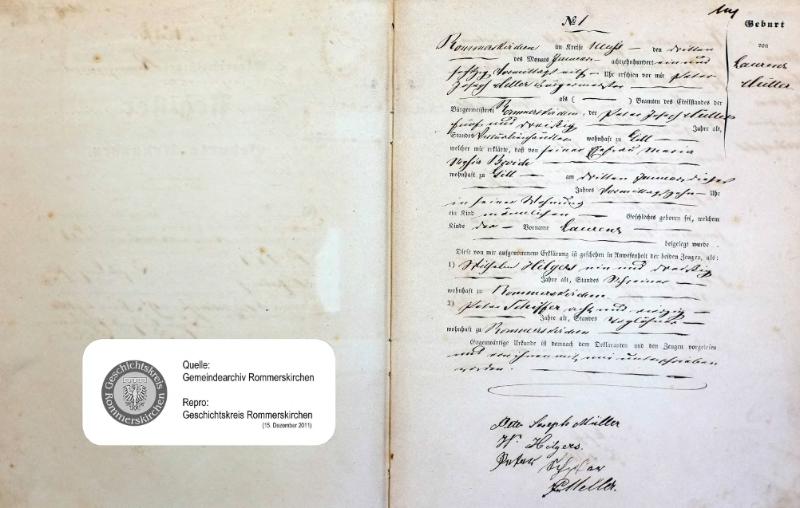 Geschichtskreis
Rommerskirchen
Quelle:
Gemeindearchiv Rommerskirchen
Repro:
Geschichtskreis Rommerskirchen
(15. Dezember 2011)
№ 1
Geburt
von
Laurenz
Müller
Rommerskirchen im Kreise Neuß den dritten
des Monats Januar achtzehnhundert ein und
sechzig, Vormittags Uhr erschien vor mir Peter
Josef Bürgermeister
als Beamten des Civilstandes der
Bürgermeisterei Rommerskirchen, der Peter Josef Müller
fünf und dreißig Jahre alt,
Standes wohnhaft zu Gill
welcher mir erklärte, daß von seiner Ehefrau Maria
wohnhaft zu Gill am dritten Januar dieses
Jahres Vormittags zehn Uhr
in seiner Wohnung
ein Kind männlichen Geschlechts geboren sei, welchem
Kinde der Vorname Laurenz
beigelegt wurde.
Diese von mir aufgenommene Erklärung ist geschehen in Anwesenheit der beiden Zeugen, als:
1) Wilhelm Helgers ein und dreißig
Jahre alt, Standes Schreiner
wohnhaft zu Rommerskirchen
2) Peter Schiffer acht und
Jahre alt, Standes Taglöhner
wohnhaft zu Rommerskirchen
Gegenwärtige Urkunde ist demnach dem Deklaranten und den Zeugen vorgelesen
und von ihnen mit mir unterschrieben
worden.
Peter Joseph Müller
W. Helgers.
Peter